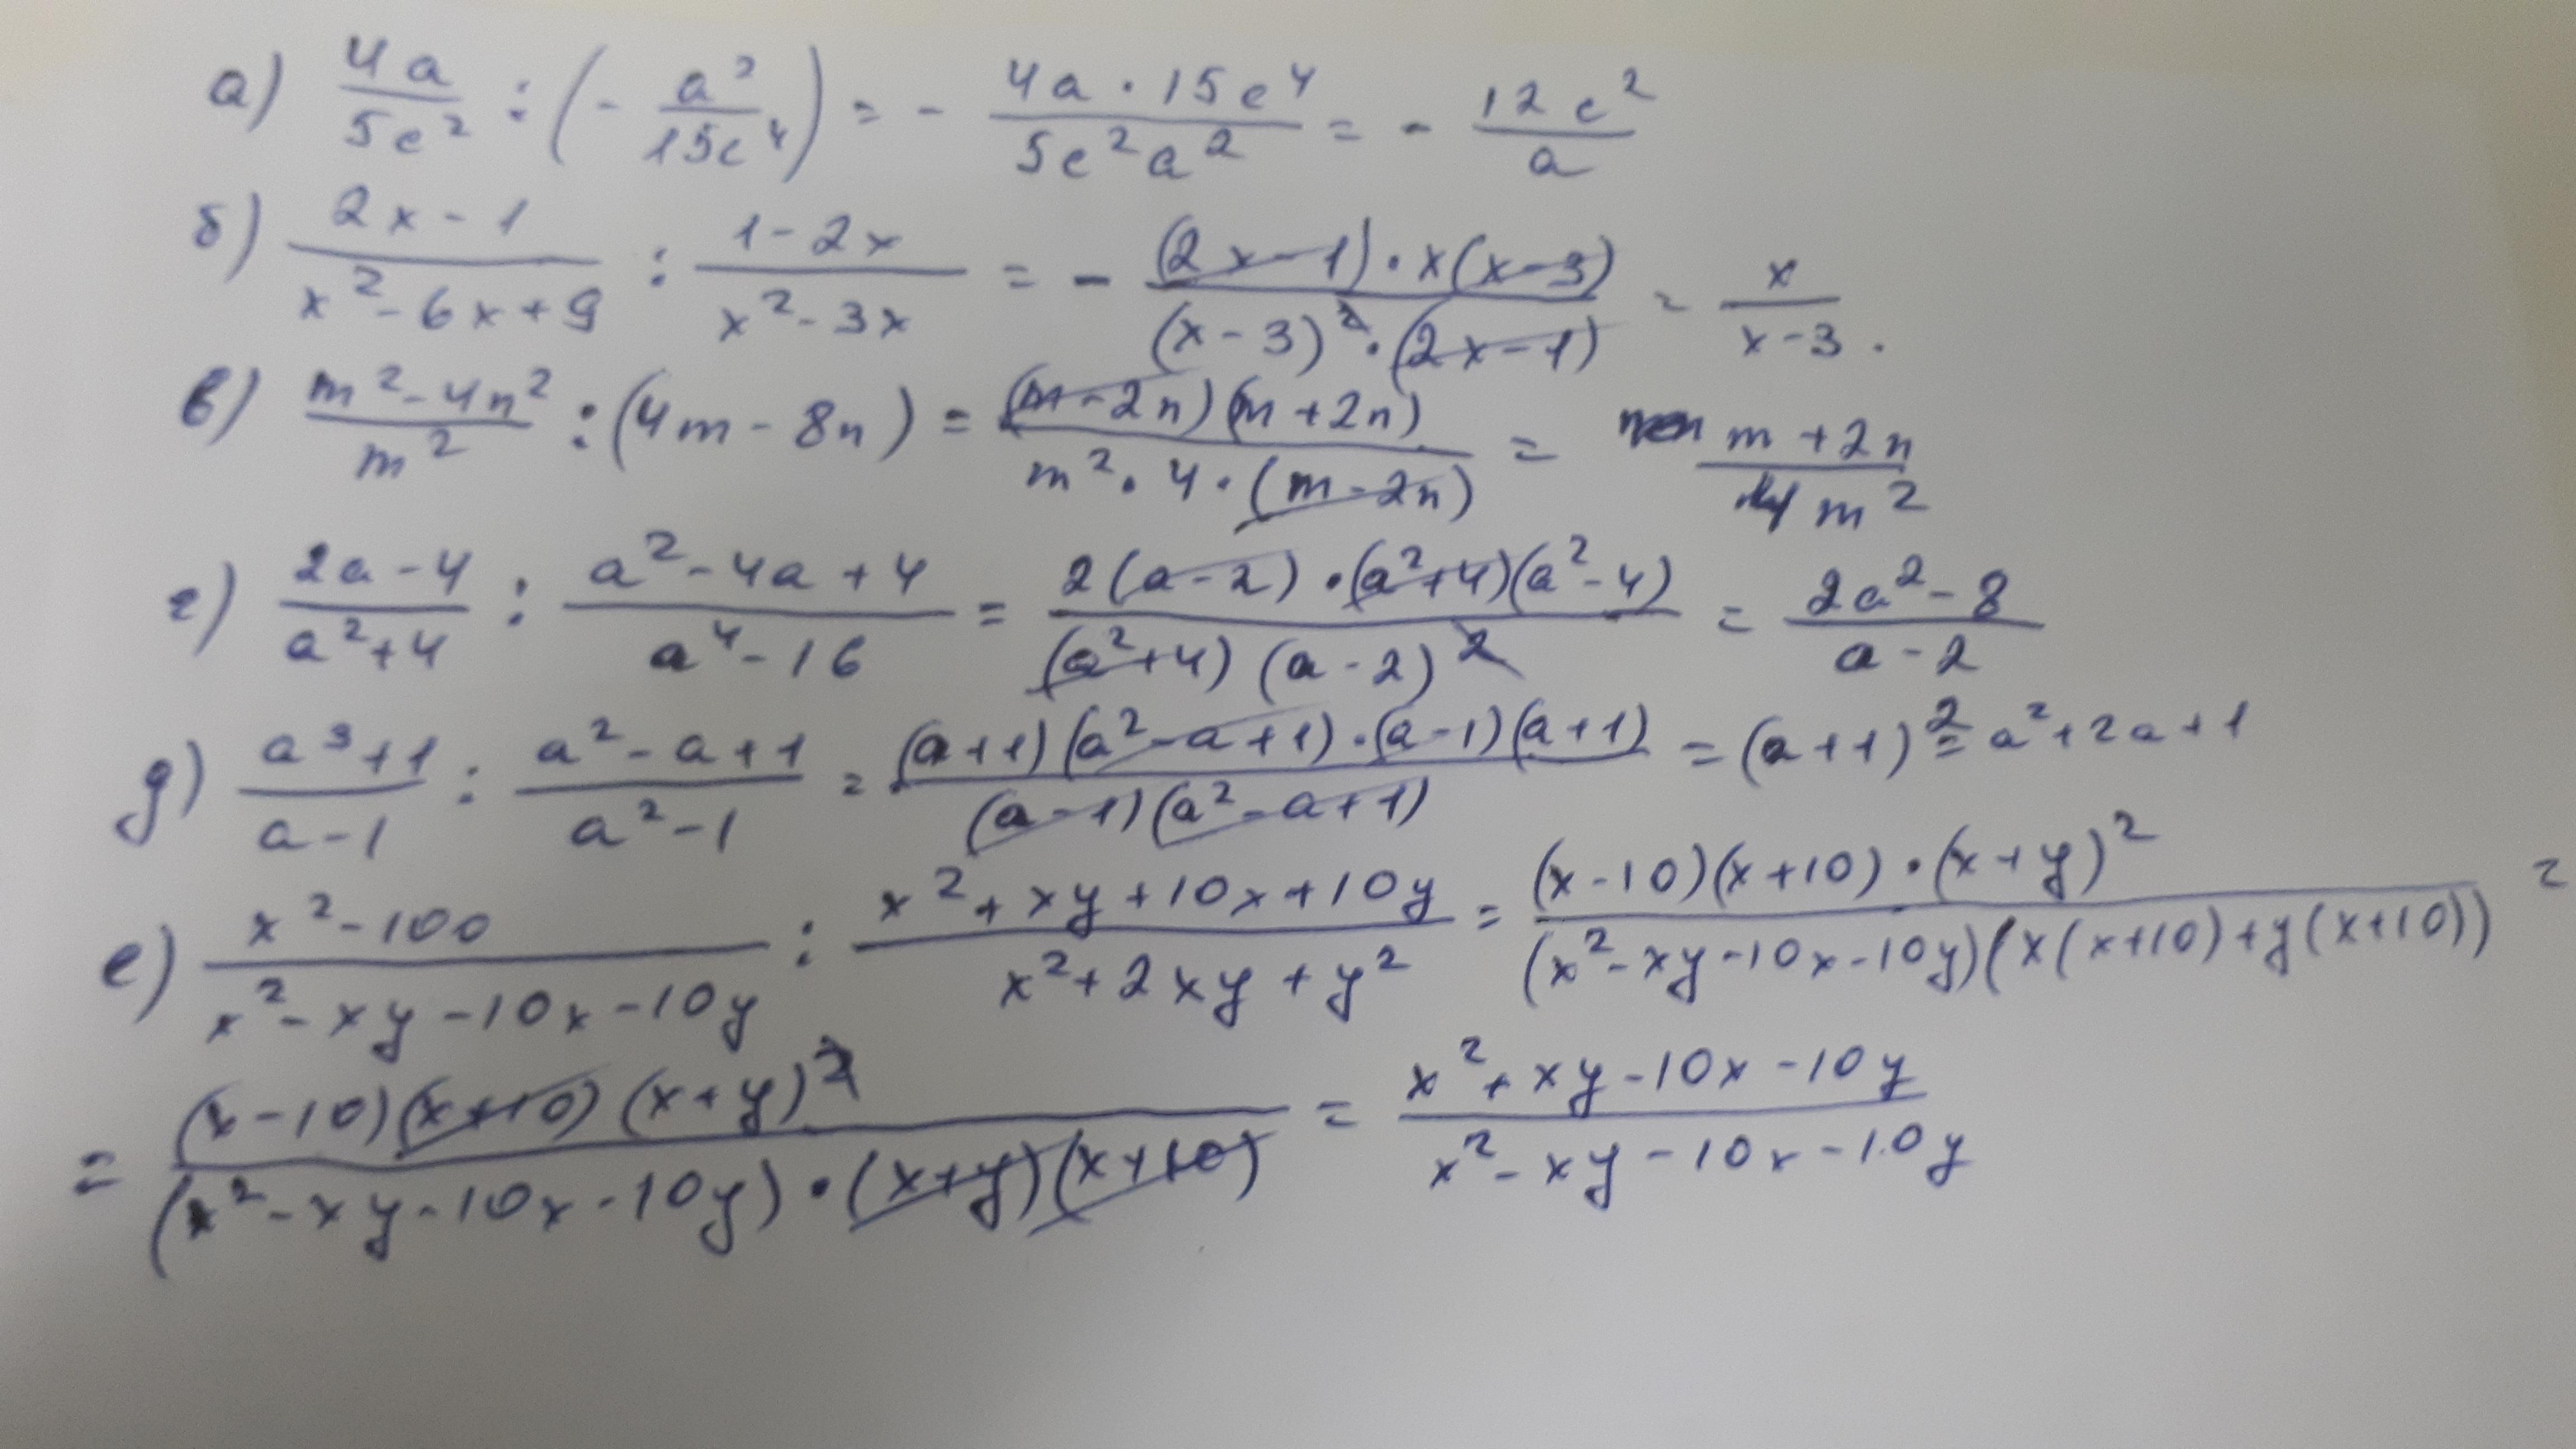 а) 4a/5c² : (- a²/15c⁴) = - 4a · 15c⁴/5c²a² = - 12c²/a
б) 2x - 1/x² - 6x + 9 : 1 - 2x/x² - 3x = - (2x - 1) · x(x - 3)/(x - 3)² · (2x - 1) = x/x - 3 .
в) m² - 4n²/m² : (4m - 8n) = (m - 2n)(m + 2n)/m² · 4 · (m - 2n) = m + 2n/4m²
г) 2a - 4/a² + 4 : a² - 4a + 4/a⁴ - 16 = 2(a - 2) · (a² + 4)(a² - 4)/(a² + 4)(a - 2)² = 2a² - 8/a - 2
д) a³ + 1/a - 1 : a² - a + 1/a² - 1 = (a + 1)(a² - a + 1) · (a - 1)(a + 1)/(a - 1)(a² - a + 1) = (a + 1)² = a² + 2a + 1
е) x² - 100/x² - xy - 10x - 10y : x² + xy + 10x + 10y/x² + 2xy + y² = (x - 10)(x + 10) · (x + y)²/(x² - xy - 10x - 10y)(x(x + 10) + y(x + 10)) =
= (x - 10)(x + 10)(x + y)²/(x² - xy - 10x - 10y) · (x + y)(x + 10) = x² + xy - 10x - 10y/x² - xy - 10x - 10y